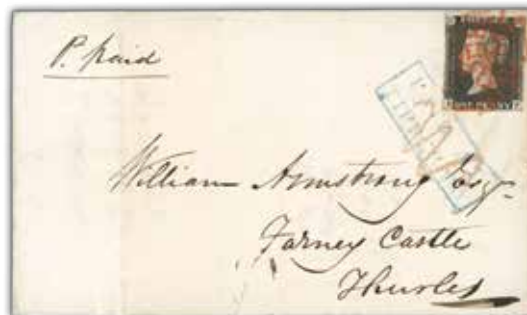 P. Paid
William Armstrong Esqr
Farney Castle
Thurles
ONE PENNY